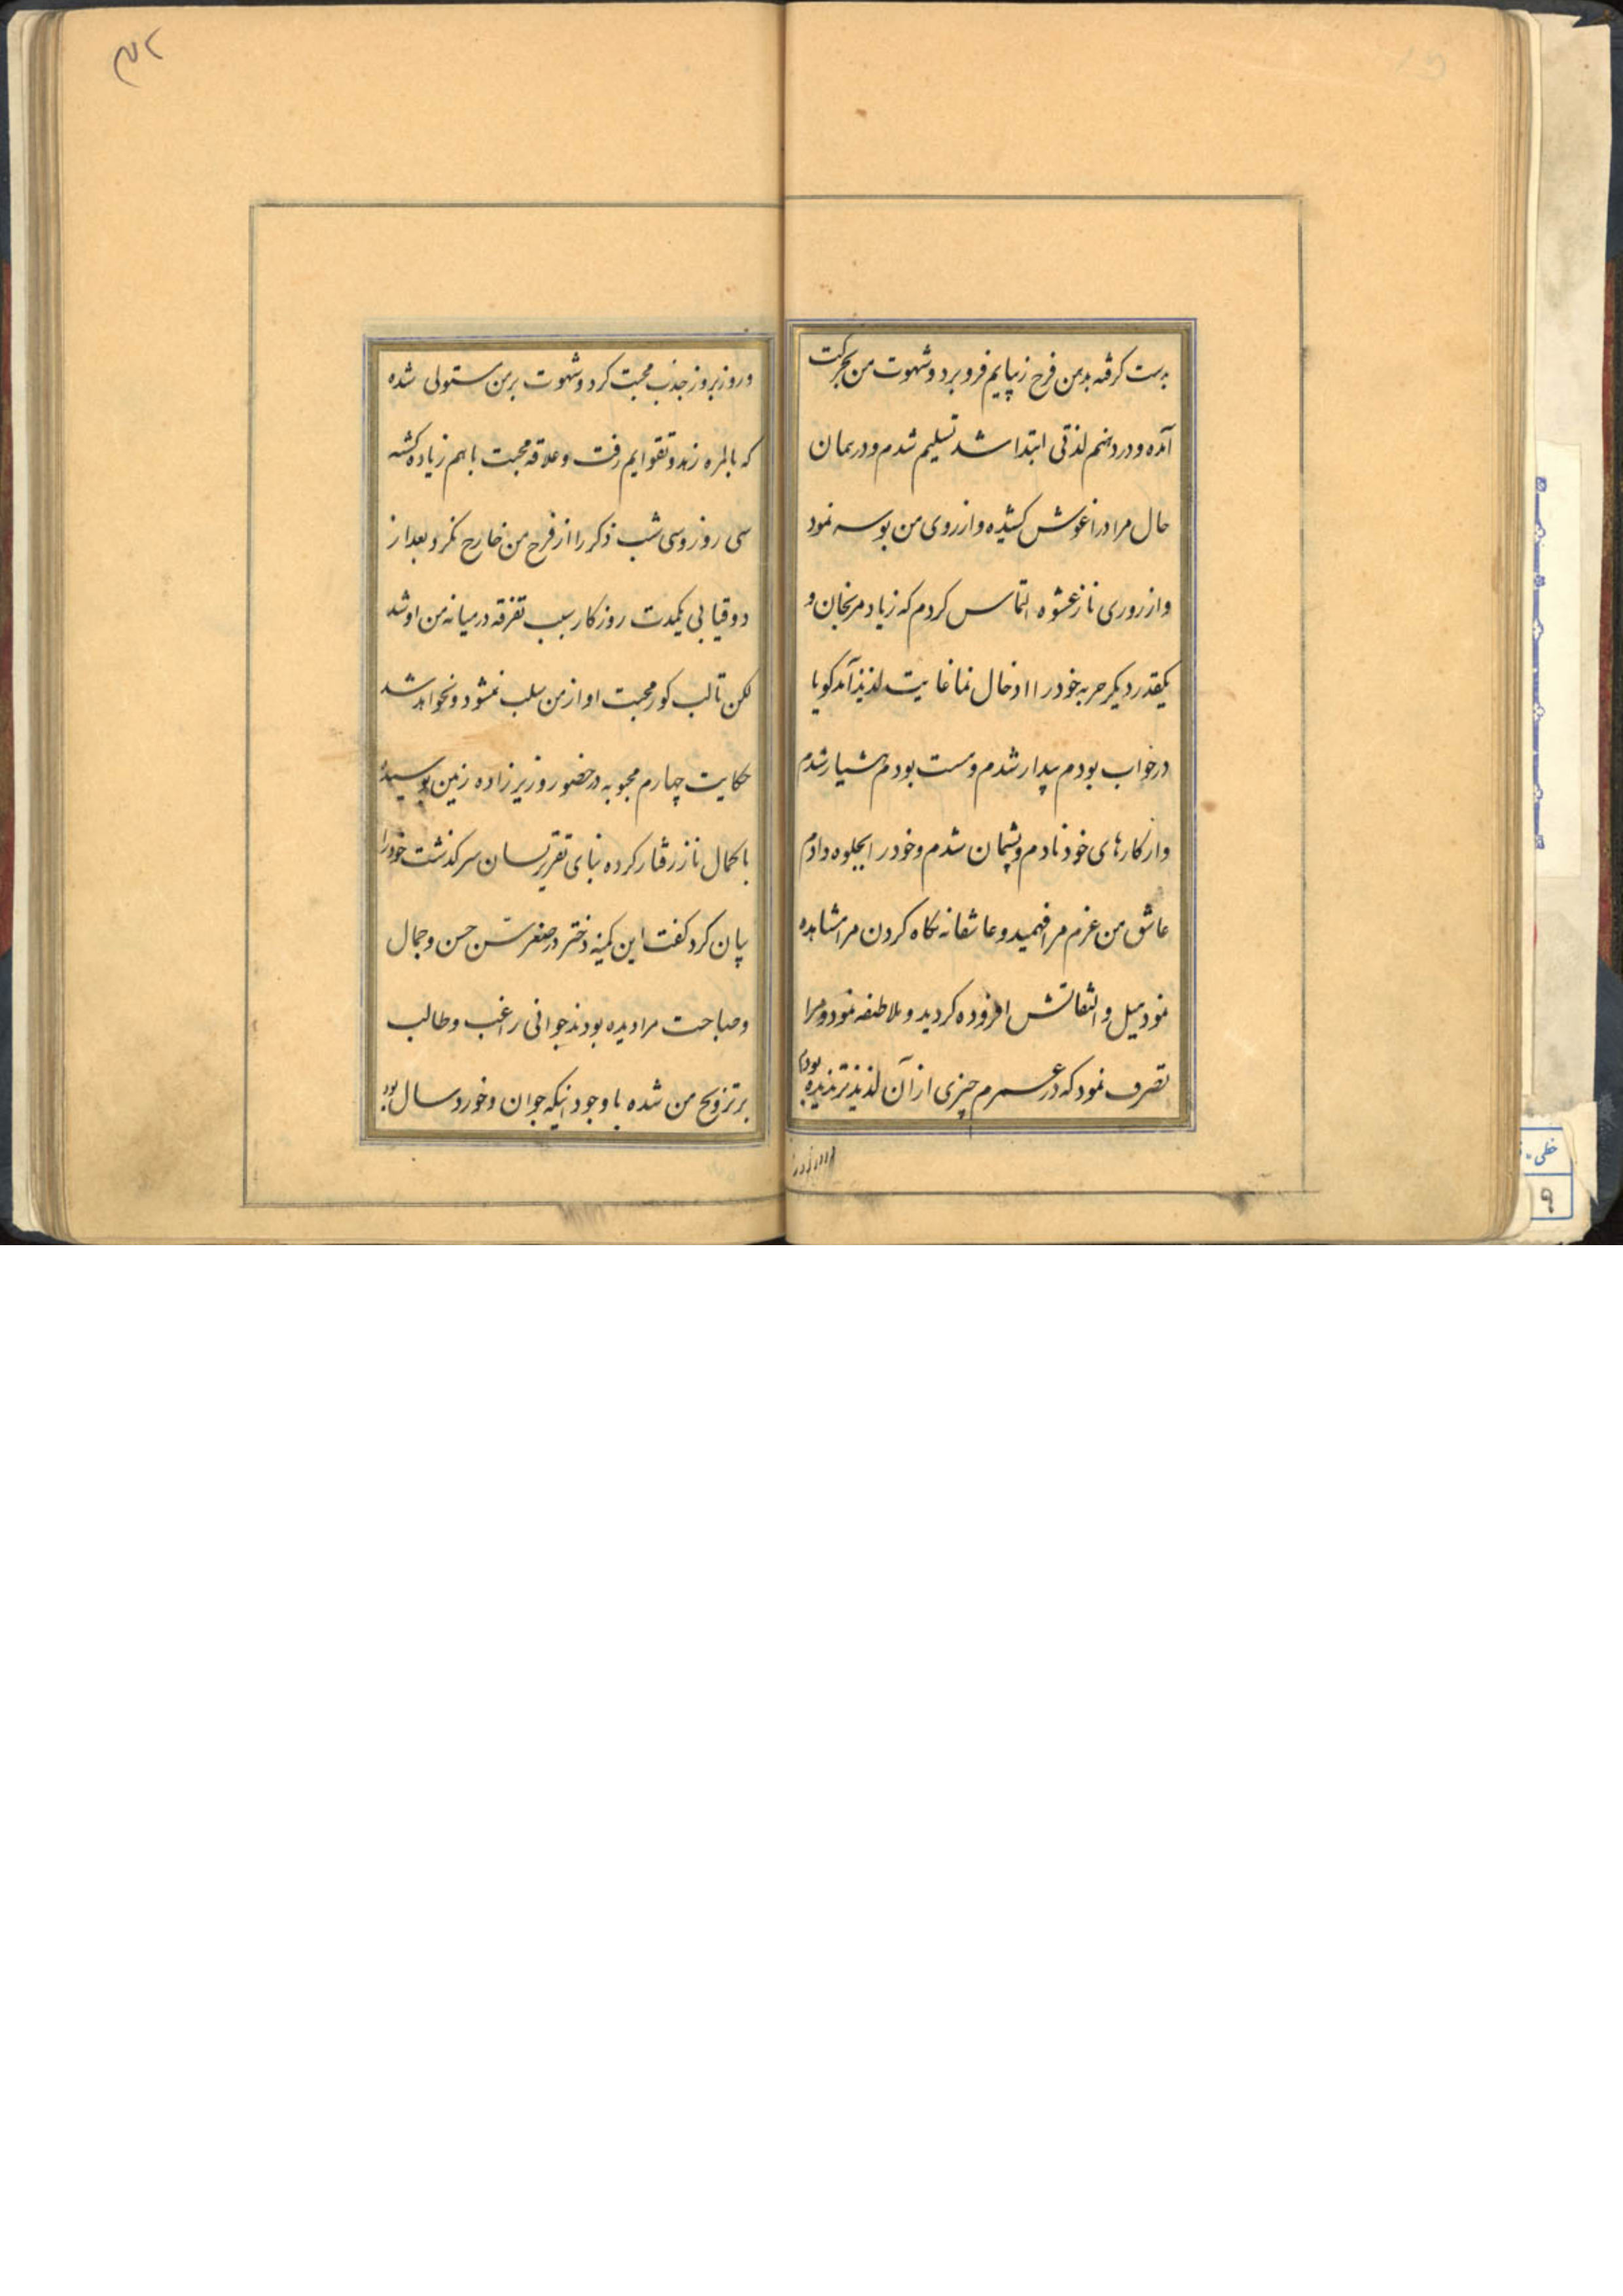 بدست گرفته بدهن فرج زیبایم فرو برد و شهوت من بحرکت
آمده و دردهنم لذتی ابتدا شد تسلیم شدم و در همان
حال مرا در اغوش کشیده و از روی من بوسه نمود
و از روری ناز عشوه التماس کردم که زیاد مرنجان و
یکقدر دیکر حربه خود را ادخال نما غایت لذیذ آمد کویا
در خواب بودم بیدار شدم و مست بودم هشیار شدم
و از کارهای خود نادم و پشیمان شدم و خود را بجلوه دادم
عاشق من عزم مرا فهمید و عاشقانه نکاه کردن مرا مشاهده
نمود میل و التفاتش افزوده کردید و ملاطفه نمود و مرا
تصرف نمود که در عمرم چیزی از آن لذیذتر ندیده بودم
و روز بروز جذب محبت کرد و شهوت بر من مستولی شده
که بالمره زهد و تقوایم رفت و علاقه محبت باهم زیاده کشته
سی روز و سی شب ذکر را از فرج من خارج نکرد و بعد از
ذوقیابی یکمدت روزکار سبب تفرقه در میانه من او شد
لکن تا لب کور محبت او از من سلب نمشود و نخواهد شد
حکایت چهارم محبوبه در حضور وزیر زاده زمین بوسیده
با کمال ناز رفتار کرده بنای تقریر لسان سرکذشت خود را
بیان کرد کفت این کمینه دختر در صغر سن حسن و جمال
و صباحت مرا دیده بودند جوانی راغب و طالب
بر تزویج من شده با وجود اینکه جوان و خورد سال بود
خطی
۹